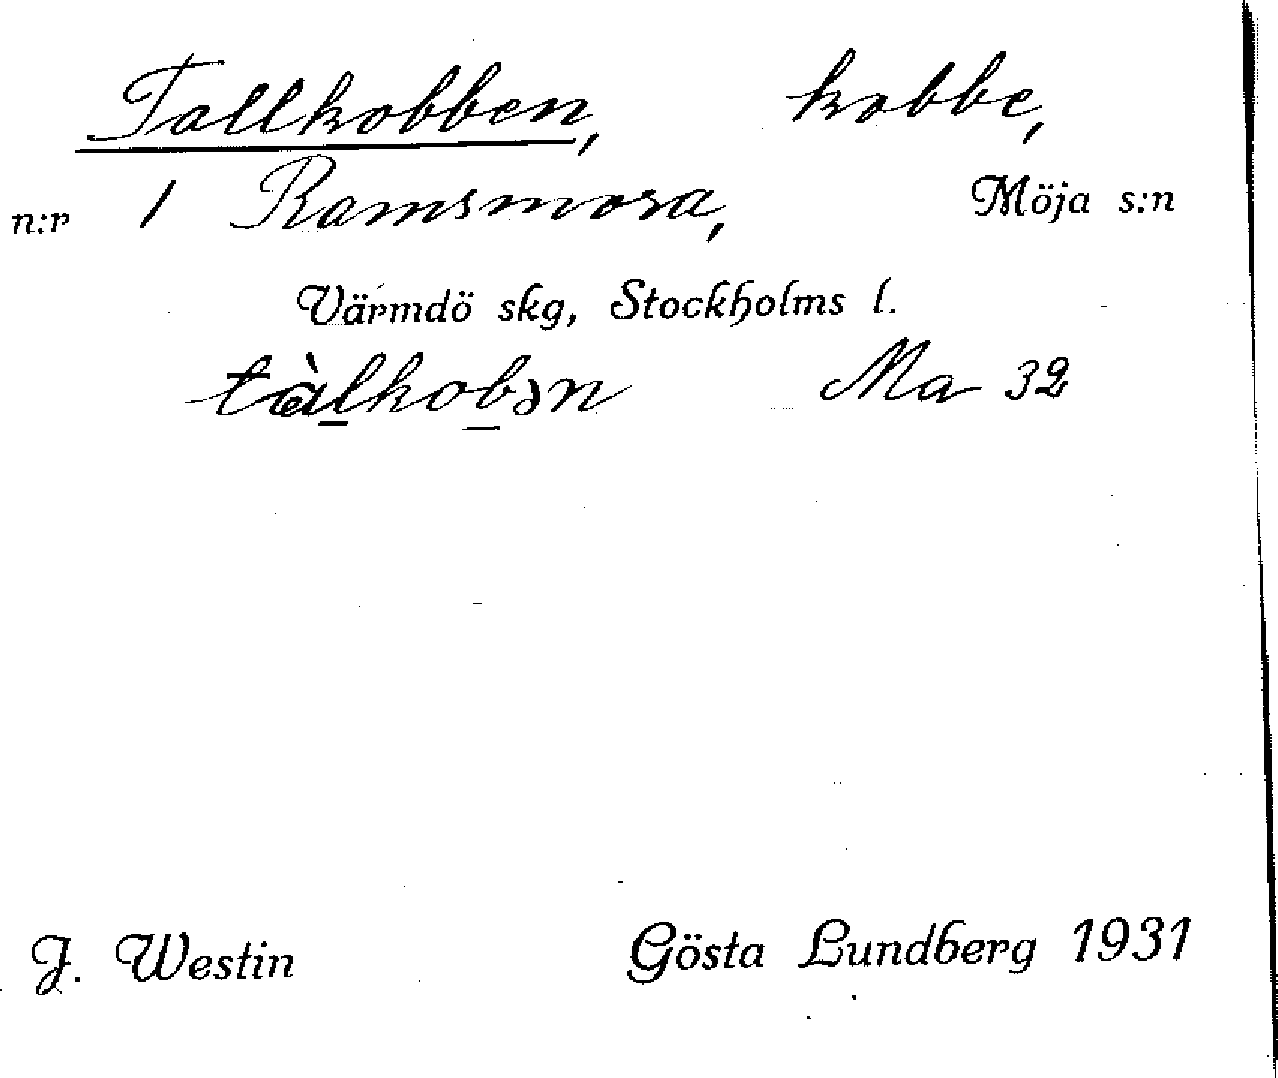 Tallkobben, kobbe,
n:r 1 Ramsmora, Möja s:n
Värmdö skg, Stockholms l.
tàlkobən Ma 32
J. Westin Gösta Lundberg 1931